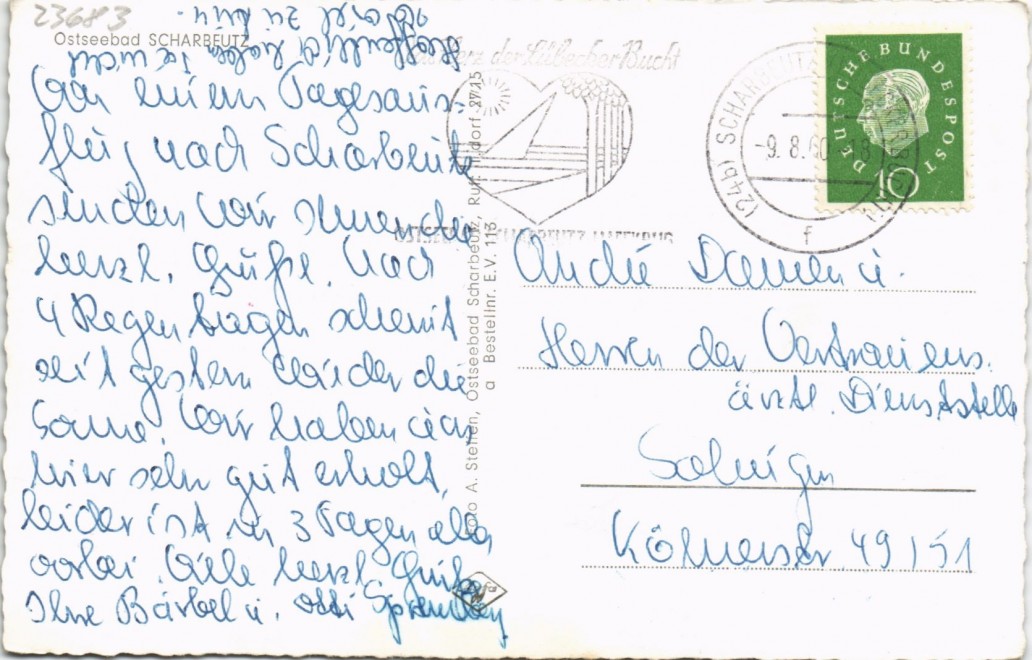 23683
Ostseebad SCHARBEUTZ
Von einem Tagesaus-
flug nach Scharbeutz
senden wir
herzl. Grüße. Nach
4 Regentagen scheint
seit gestern wieder die
Sonne. Wir haben uns
hier sehr gut erholt,
leider ist in 3 Tagen alles
vorbei. Viele herzl. Grüße
Ihre Bärbel u.
Hoffentlich haben Sie nicht
so viel zu tun.
Foto A. Steffen, Ostseebad Scharbeutz, Ruf: 27 15
a Bestellnr. E.V. 113
Herz der Lübecher Bucht
(24b) SCHARBEUTZ
-9. 8. 60
f
DEUTSCHE BUNDESPOST
10
An die Damen u.
Herren der Vertrauens-
ärztl. Dienststelle
Solingen
Kölnerstr. 49/51